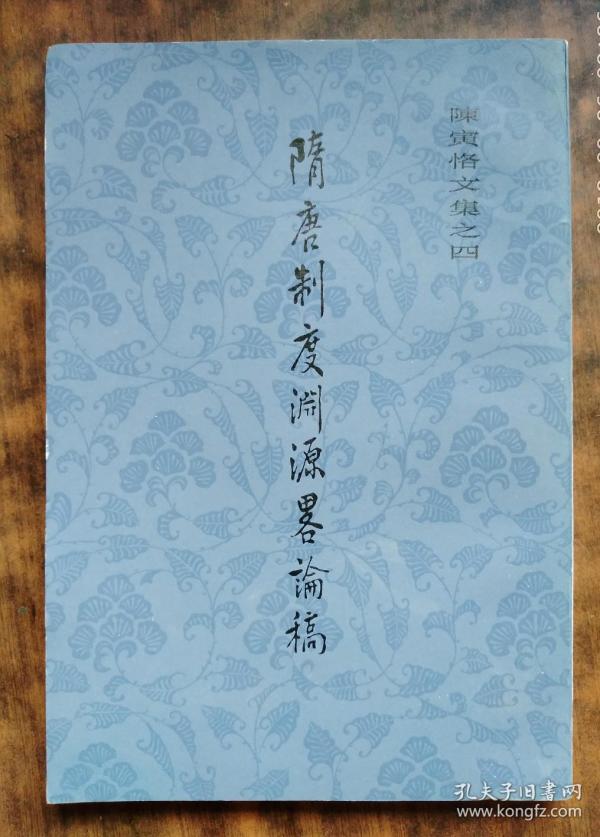 陳寅恪文集之四
隋唐制度淵源畧論稿
孔夫子旧書网
www.kongfz.com